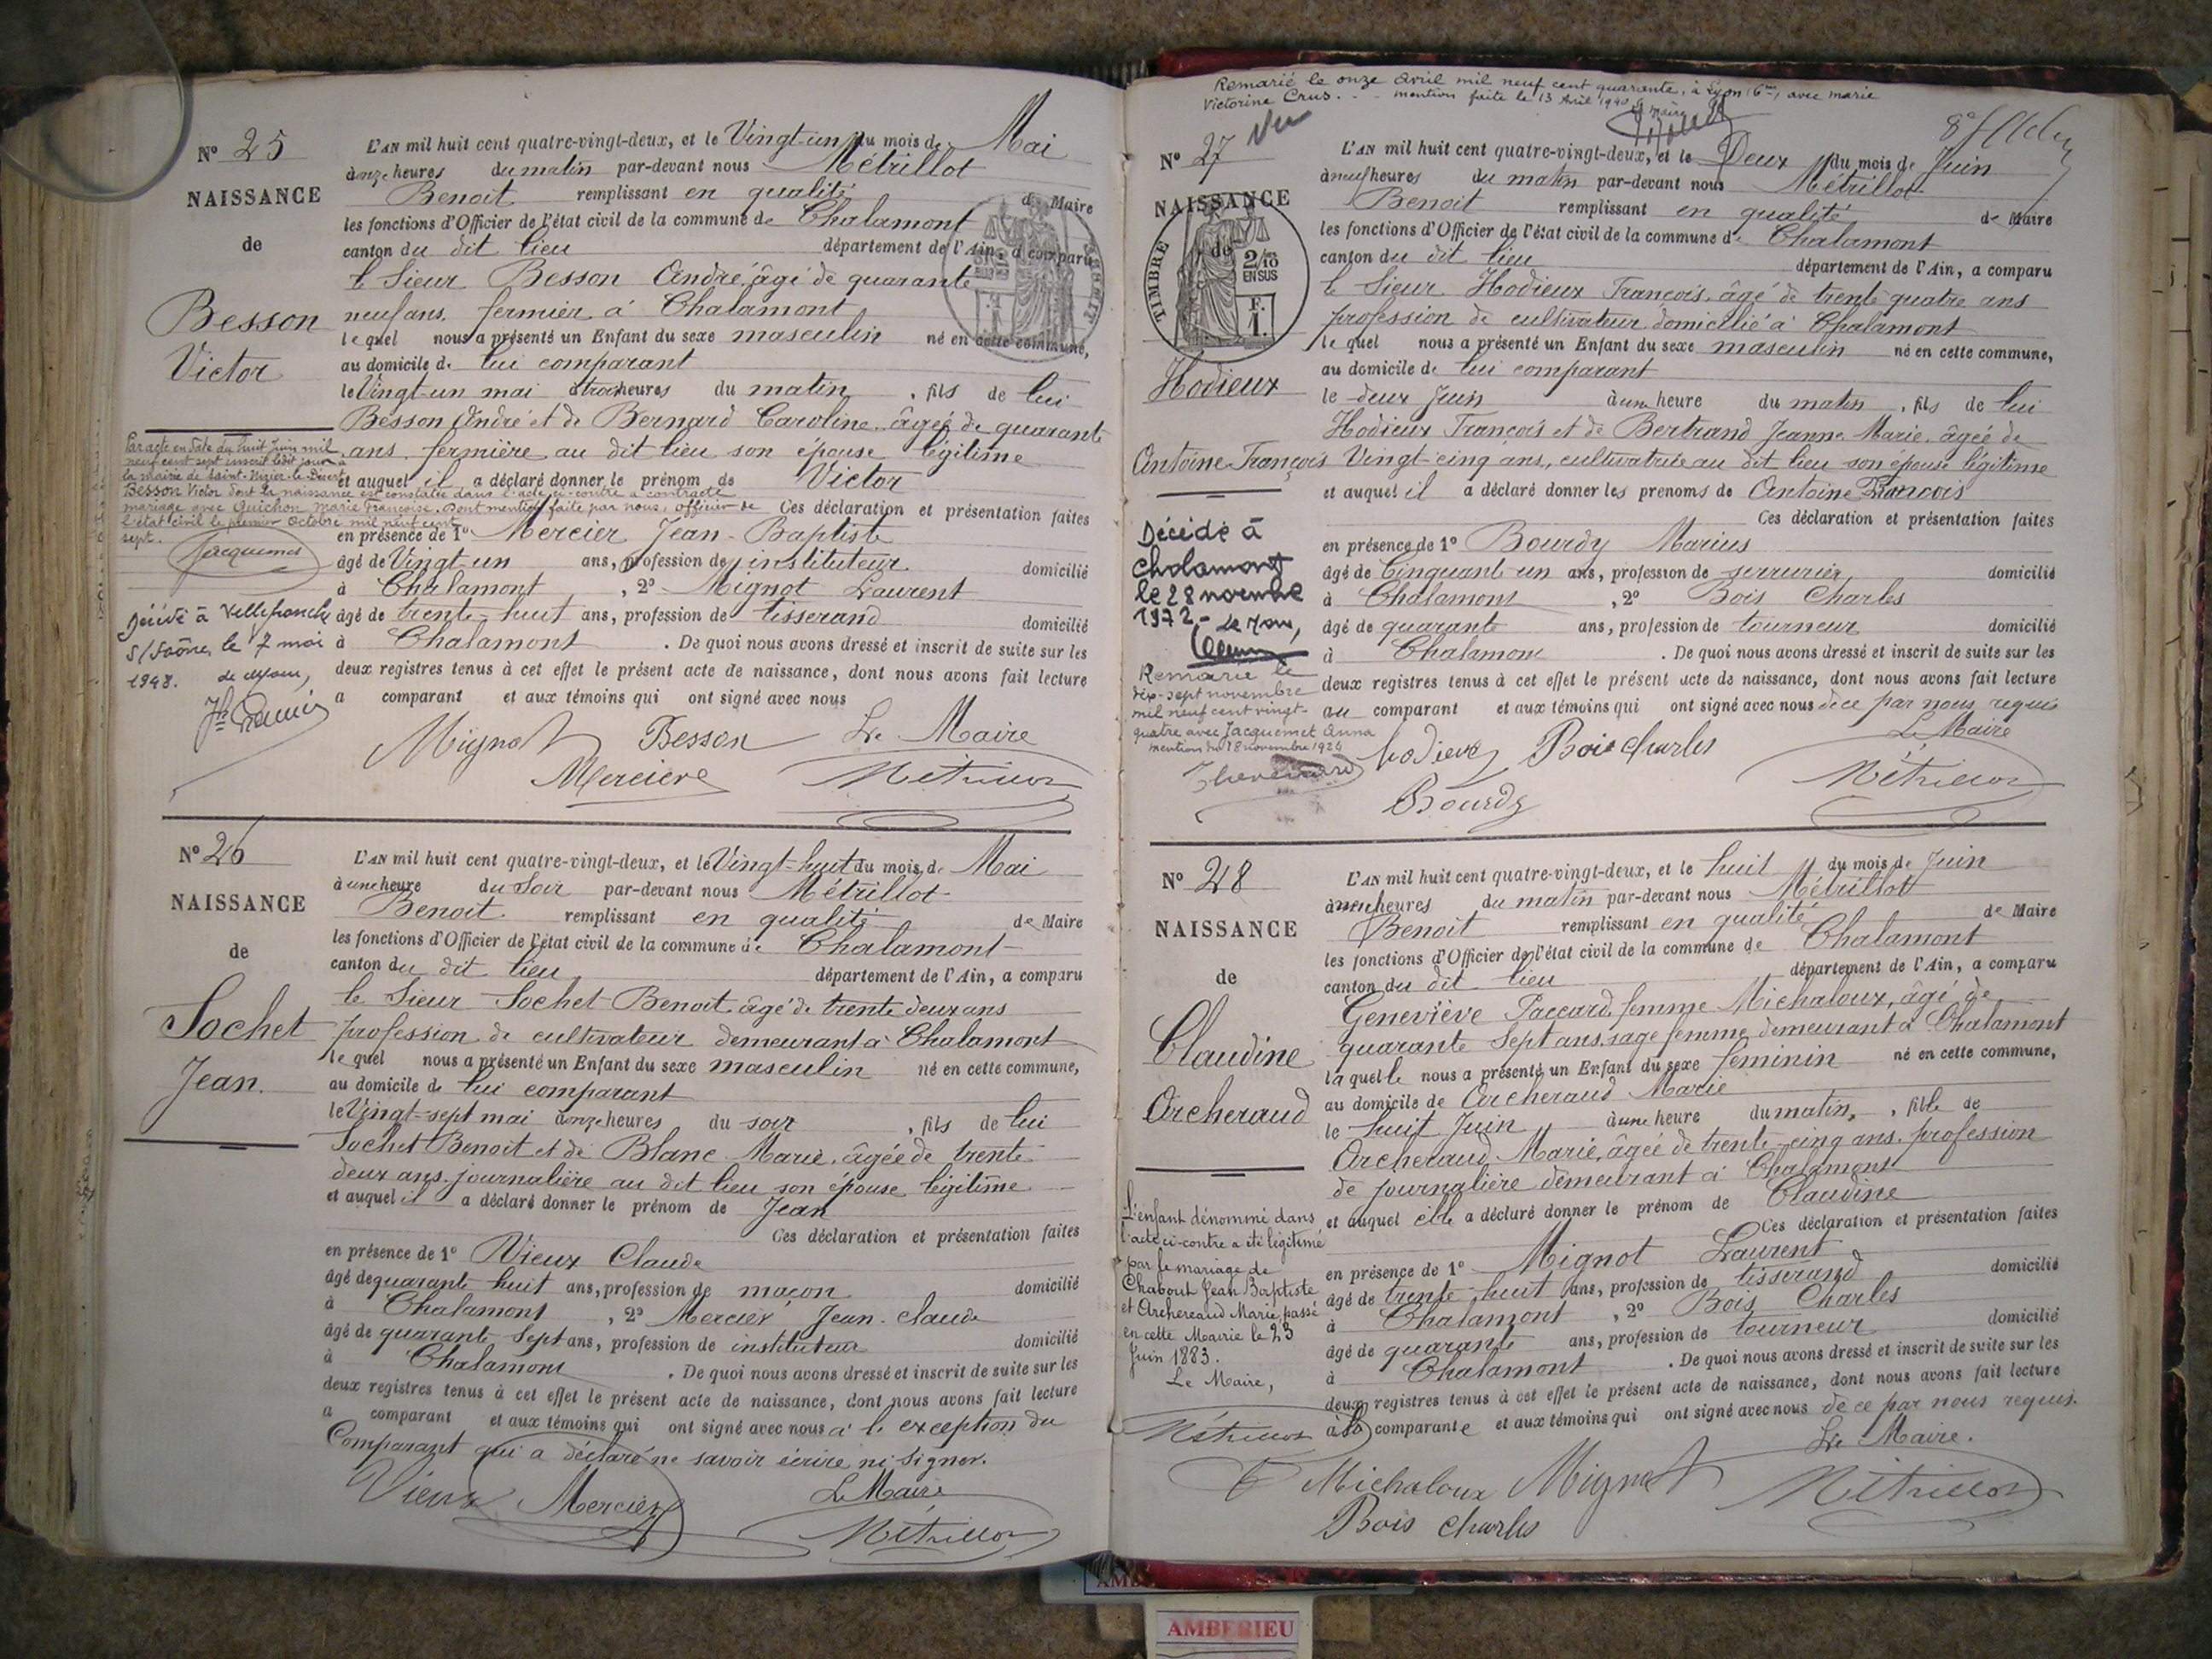 N° 25
NAISSANCE
de
Besson
Victor
L'AN mil huit cent quatre-vingt-deux, et le Vingt-un du mois de Mai
à onze heures du matin par-devant nous Métrillot
Benoit remplissant en qualité de Maire
les fonctions d'Officier de l'état civil de la commune de Chalamont
canton du dit lieu département de l'Ain, a comparu
le Sieur Besson André âgé de quarante
neuf ans, fermier à Chalamont
le quel nous a présenté un Enfant du sexe masculin né en cette commune,
au domicile de lui comparant
le Vingt-un mai à trois heures du matin, fils de lui
Besson André et de Bernard Caroline, âgée de quarante
ans, fermière au dit lieu son épouse légitime
et auquel il a déclaré donner le prénom de Victor
Ces déclaration et présentation faites
en présence de 1° Mercier Jean-Baptiste
âgé de Vingt-un ans, profession de instituteur domicilié
à Chalamont, 2° Mignot Laurent
âgé de trente-huit ans, profession de tisserand domicilié
à Chalamont. De quoi nous avons dressé et inscrit de suite sur les
deux registres tenus à cet effet le présent acte de naissance, dont nous avons fait lecture
a comparant et aux témoins qui ont signé avec nous
Mignot Besson Le Maire
Mercière Métrillot
Par acte en date du huit juin mil
neuf cent sept inscrit ledit jour à
la mairie de Saint-Nizier-le-Désert
Besson Victor dont la naissance est constatée dans l'acte ci-contre a contracté
mariage avec Guichon Marie Françoise. Dont mention faite par nous, officier de
l'état civil le premier Octobre mil neuf cent
sept.
Jacquemet
Décédé à Villefranche
s/Saône, le 7 mai
1948.
N° 26
NAISSANCE
de
Sochet
Jean.
L'AN mil huit cent quatre-vingt-deux, et le Vingt-huit du mois de Mai
à une heure du soir par-devant nous Métrillot
Benoit remplissant en qualité de Maire
les fonctions d'Officier de l'état civil de la commune de Chalamont
canton du dit lieu département de l'Ain, a comparu
le Sieur Sochet Benoit âgé de trente deux ans
profession de cultivateur demeurant à Chalamont
le quel nous a présenté un Enfant du sexe masculin né en cette commune,
au domicile de lui comparant
le Vingt-sept mai à onze heures du soir, fils de lui
Sochet Benoit et de Blanc Marie, âgée de trente
deux ans journalière au dit lieu son épouse légitime
et auquel il a déclaré donner le prénom de Jean
Ces déclaration et présentation faites
en présence de 1° Vieux Claude
âgé de quarante huit ans, profession de maçon domicilié
à Chalamont, 2° Mercier Jean-Claude
âgé de quarante sept ans, profession de instituteur domicilié
à Chalamont. De quoi nous avons dressé et inscrit de suite sur les
deux registres tenus à cet effet le présent acte de naissance, dont nous avons fait lecture
a comparant et aux témoins qui ont signé avec nous à l'exception du
Comparant qui a déclaré ne savoir écrire ni signer.
Vieux Mercier Le Maire
Métrillot
Remarié le onze avril mil neuf cent quarante, à Lyon (6me), avec marie
Victorine Crus. mention faite le 13 Avril 1940
N° 27 Vu
NAISSANCE
de
TIMBRE
2/10
EN SUS
F.
1.
Hodieux
Antoine François
L'AN mil huit cent quatre-vingt-deux, et le Deux du mois de Juin
à neuf heures du matin par-devant nous Métrillot
Benoit remplissant en qualité de Maire
les fonctions d'Officier de l'état civil de la commune de Chalamont
canton du dit lieu département de l'Ain, a comparu
le Sieur Hodieux François, âgé de trente quatre ans
profession de cultivateur domicilié à Chalamont
le quel nous a présenté un Enfant du sexe masculin né en cette commune,
au domicile de lui comparant
le deux Juin à une heure du matin, fils de lui
Hodieux François et de Bertrand Jeanne Marie, âgée de
Vingt-cinq ans, cultivatrice au dit lieu son épouse légitime
et auquel il a déclaré donner les prénoms de Antoine François
Ces déclaration et présentation faites
en présence de 1° Bourdy Marius
âgé de Cinquante un ans, profession de serrurier domicilié
à Chalamont, 2° Bois Charles
âgé de quarante ans, profession de tourneur domicilié
à Chalamont. De quoi nous avons dressé et inscrit de suite sur les
deux registres tenus à cet effet le présent acte de naissance, dont nous avons fait lecture
au comparant et aux témoins qui ont signé avec nous de ce par nous requis
Le Maire
hodieux Bois Charles
Bourdy Métrillot
Décédé à
Chalamont
le 28 novembre
1972
Remarié le
dix-sept novembre
mil neuf cent vingt-
quatre avec Jacquemet Anna
mention du 18 novembre 1924
N° 28
NAISSANCE
de
Claudine
Archeraud
L'AN mil huit cent quatre-vingt-deux, et le huit du mois de Juin
à heures du matin par-devant nous Métrillot
Benoit remplissant en qualité de Maire
les fonctions d'Officier de l'état civil de la commune de Chalamont
canton du dit lieu département de l'Ain, a comparu
Geneviève Paccard, femme Michaloux, âgé de
quarante sept ans, sage femme demeurant à Chalamont
la quelle nous a présenté un Enfant du sexe féminin né en cette commune,
au domicile de Archeraud Marie
le huit Juin à une heure du matin, fille de
Archeraud Marie, âgée de trente-cinq ans, profession
de journalière demeurant à Chalamont
et auquel elle a déclaré donner le prénom de Claudine
Ces déclaration et présentation faites
en présence de 1° Mignot Laurent
âgé de trente-huit ans, profession de tisserand domicilié
à Chalamont, 2° Bois Charles
âgé de quarante ans, profession de tourneur domicilié
à Chalamont. De quoi nous avons dressé et inscrit de suite sur les
deux registres tenus à cet effet le présent acte de naissance, dont nous avons fait lecture
à la comparante et aux témoins qui ont signé avec nous de ce par nous requis.
Le Maire.
Michaloux Mignot Métrillot
Bois Charles
L'enfant dénommé dans
l'acte ci-contre a été légitimé
par le mariage de
Chabout Jean Baptiste
et Archereaud Marie, passé
en cette Mairie le 23
Juin 1883.
Le Maire,
Métrillot
AMBERIEU